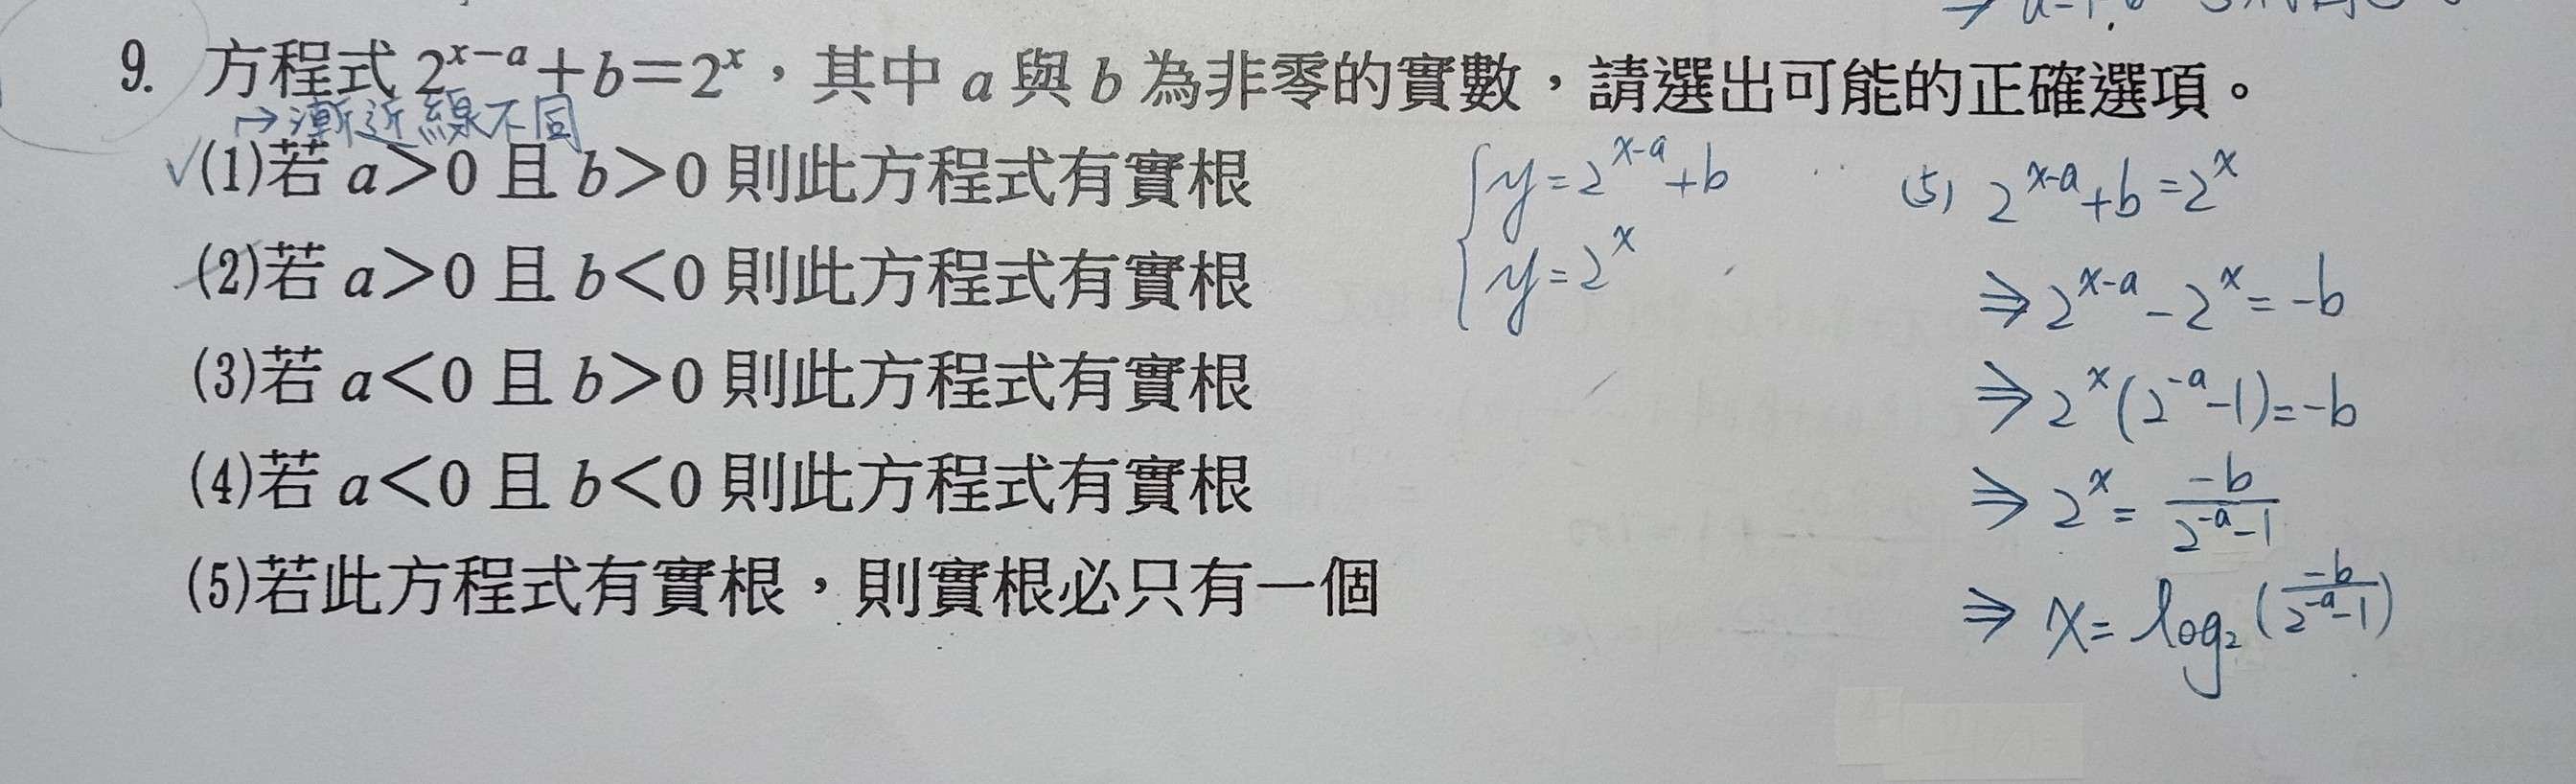 9. 方程式 2^{x-a}+b=2^x，其中 a 與 b 為非零的實數，請選出可能的正確選項。
→漸近線不同
✓(1)若 a>0 且 b>0 則此方程式有實根
(2)若 a>0 且 b<0 則此方程式有實根
(3)若 a<0 且 b>0 則此方程式有實根
(4)若 a<0 且 b<0 則此方程式有實根
(5)若此方程式有實根，則實根必只有一個
{ y=2^{x-a}+b
y=2^x
(5) 2^{x-a}+b=2^x
⇒2^{x-a}-2^x=-b
⇒2^x(2^{-a}-1)=-b
⇒2^x=\frac{-b}{2^{-a}-1}
⇒x=log₂(\frac{-b}{2^{-a}-1})